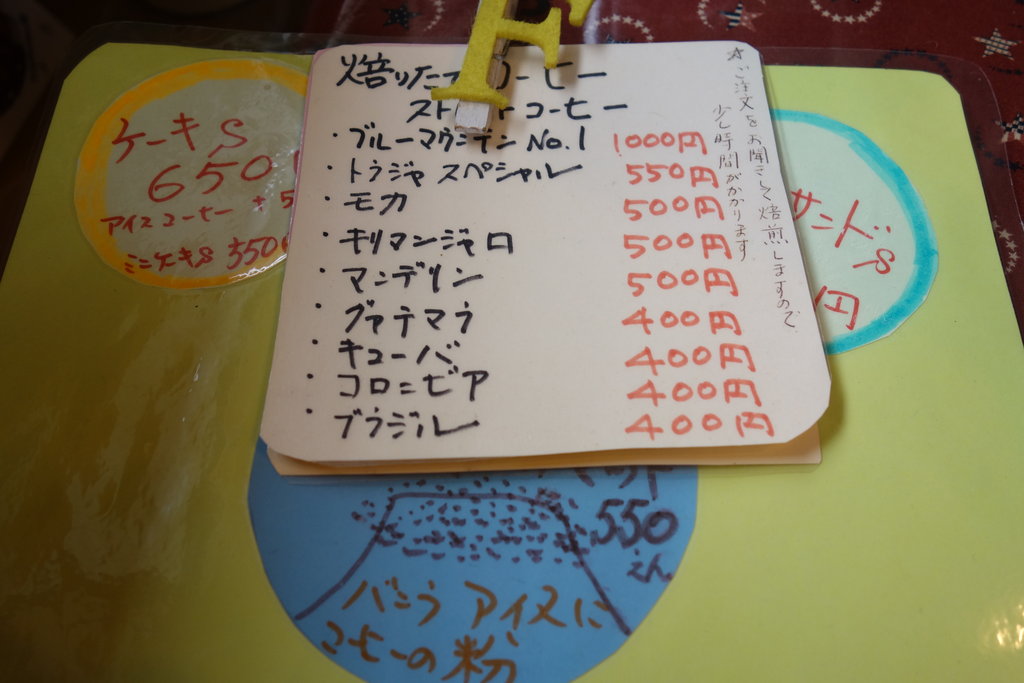 焙りたて コーヒー
ストレートコーヒー
・ブルーマウンテン No.1 1000円
・トラジャ スペシャル 550円
・モカ 500円
・キリマンジャロ 500円
・マンデリン 500円
・グァテマラ 400円
・キューバ 400円
・コロンビア 400円
・ブラジル 400円
☆ご注文をお聞きして焙煎しますので
少し時間がかかります。
ケーキS
650
アイスコーヒー + 5
ミニケーキS 550
サンドS
円
550
えん
バニラ アイスに
コーヒーの粉
F